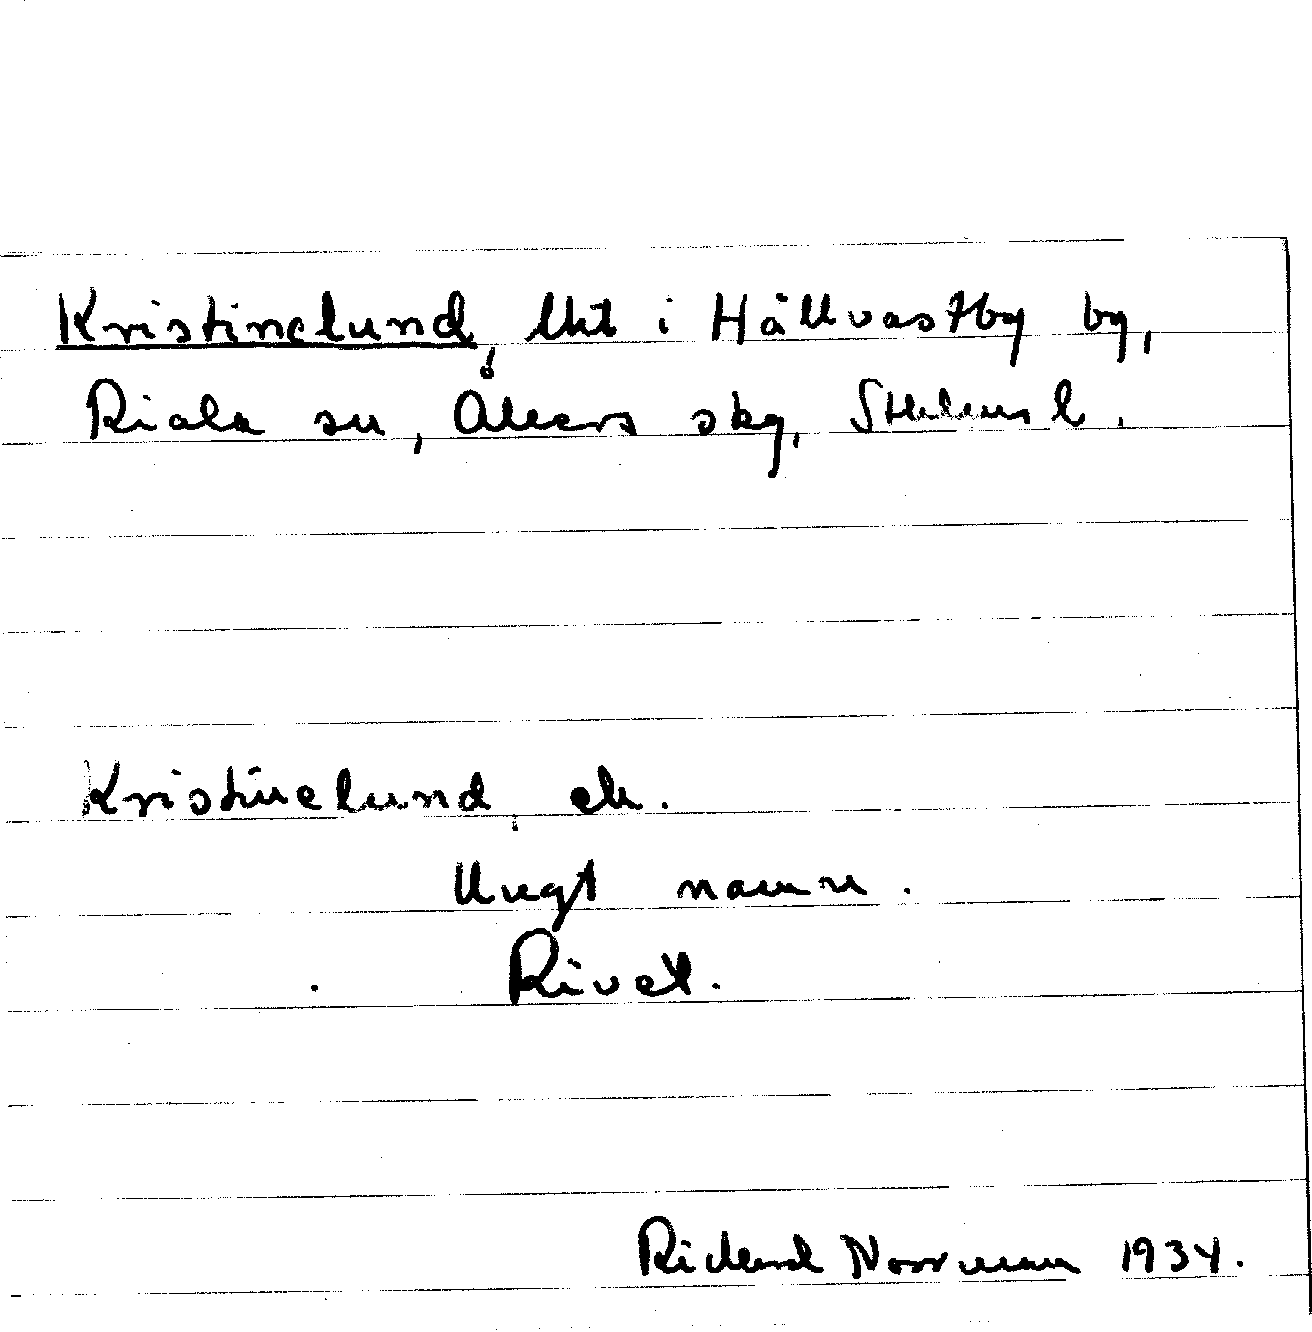 Kristinelund, lht i Hällvastby by,
Riala sn, Åkers skg, Sthlms l.
Kristinelund,
Ungt namn.
Rivet.
Richard Norrman 1934.